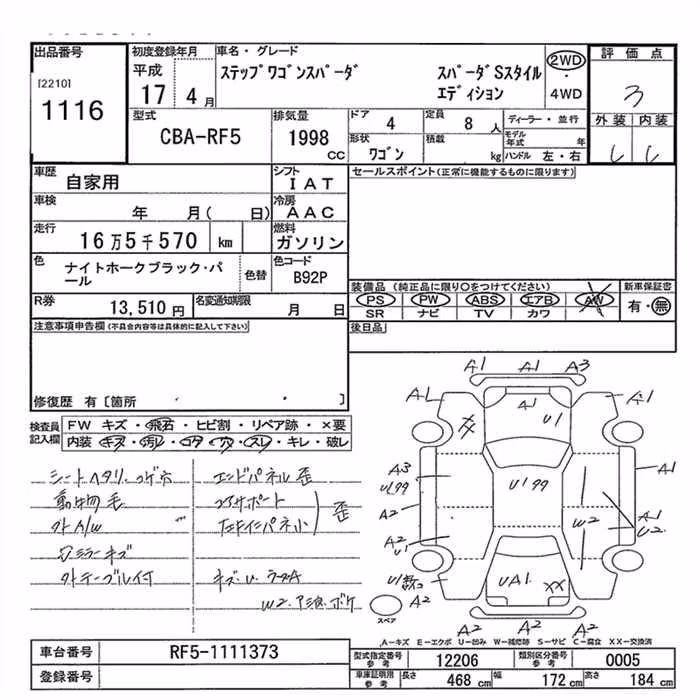 出品番号
[2210]
1116
初度登録年月
平成
17 4 月
車名・グレード
ステップワゴンスパーダ スパーダSスタイル
エディション
2WD
・
4WD
評価点
3
外装 内装
型式
CBA-RF5
排気量
1998
CC
ドア
4
定員
8 人
ディーラー・並行
モデル
年式 年
形状
ワゴン
積載
kg
ハンドル 左・右
車歴
自家用
シフト
IAT
セールスポイント(正常に機能するものに限ります)
車検
年 月( 日)
冷房
AAC
走行
16万5千570 km
燃料
ガソリン
色
ナイトホークブラック・パ
ール
色替
色コード
B92P
装備品 (純正品に限り○をつけてください)
新車保証書
PS PW ABS エアB AW
SR ナビ TV カワ
有・無
R券
13,510円
名変通知期限
月 日
注意事項申告欄(不具合内容等は具体的に記入して下さい)
後日品
修復歴 有〔箇所 ・ 〕
検査員
記入欄
FW キズ・飛石・ヒビ割・リペア跡・×要
内装 キズ・汚レ・コゲ・穴・スレ・キレ・破レ
シートヘタリ・コゲ穴
動物毛
外A/W
ミラーキズ
エンドパネル歪
コアサポート
歪
キズ・U・ラーA
W2・アミ波・ボケ
A1
A1
A3
A1
A1
A1
U1
A3
U199
A2
A2
U1
U199
W2
A1
A1
U2
U1
A2
UA1
XX
A2
A2
A2
スペア
A-キズ E-エクボ U-凹み W-補修跡 S-サビ C-腐食 XX-交換済
車台番号
RF5-1111373
登録番号
型式指定番号
参考
12206
類別区分番号
参考
0005
車庫証明用
参考
長さ 468 cm 幅 172 cm 高さ 184 cm